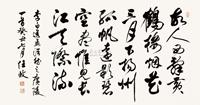 故人西辭黃
鶴樓煙花
三月下揚州
孤帆遠影碧
空盡惟見長
江天際流
李白送孟浩然之廣陵
一首
七月任政